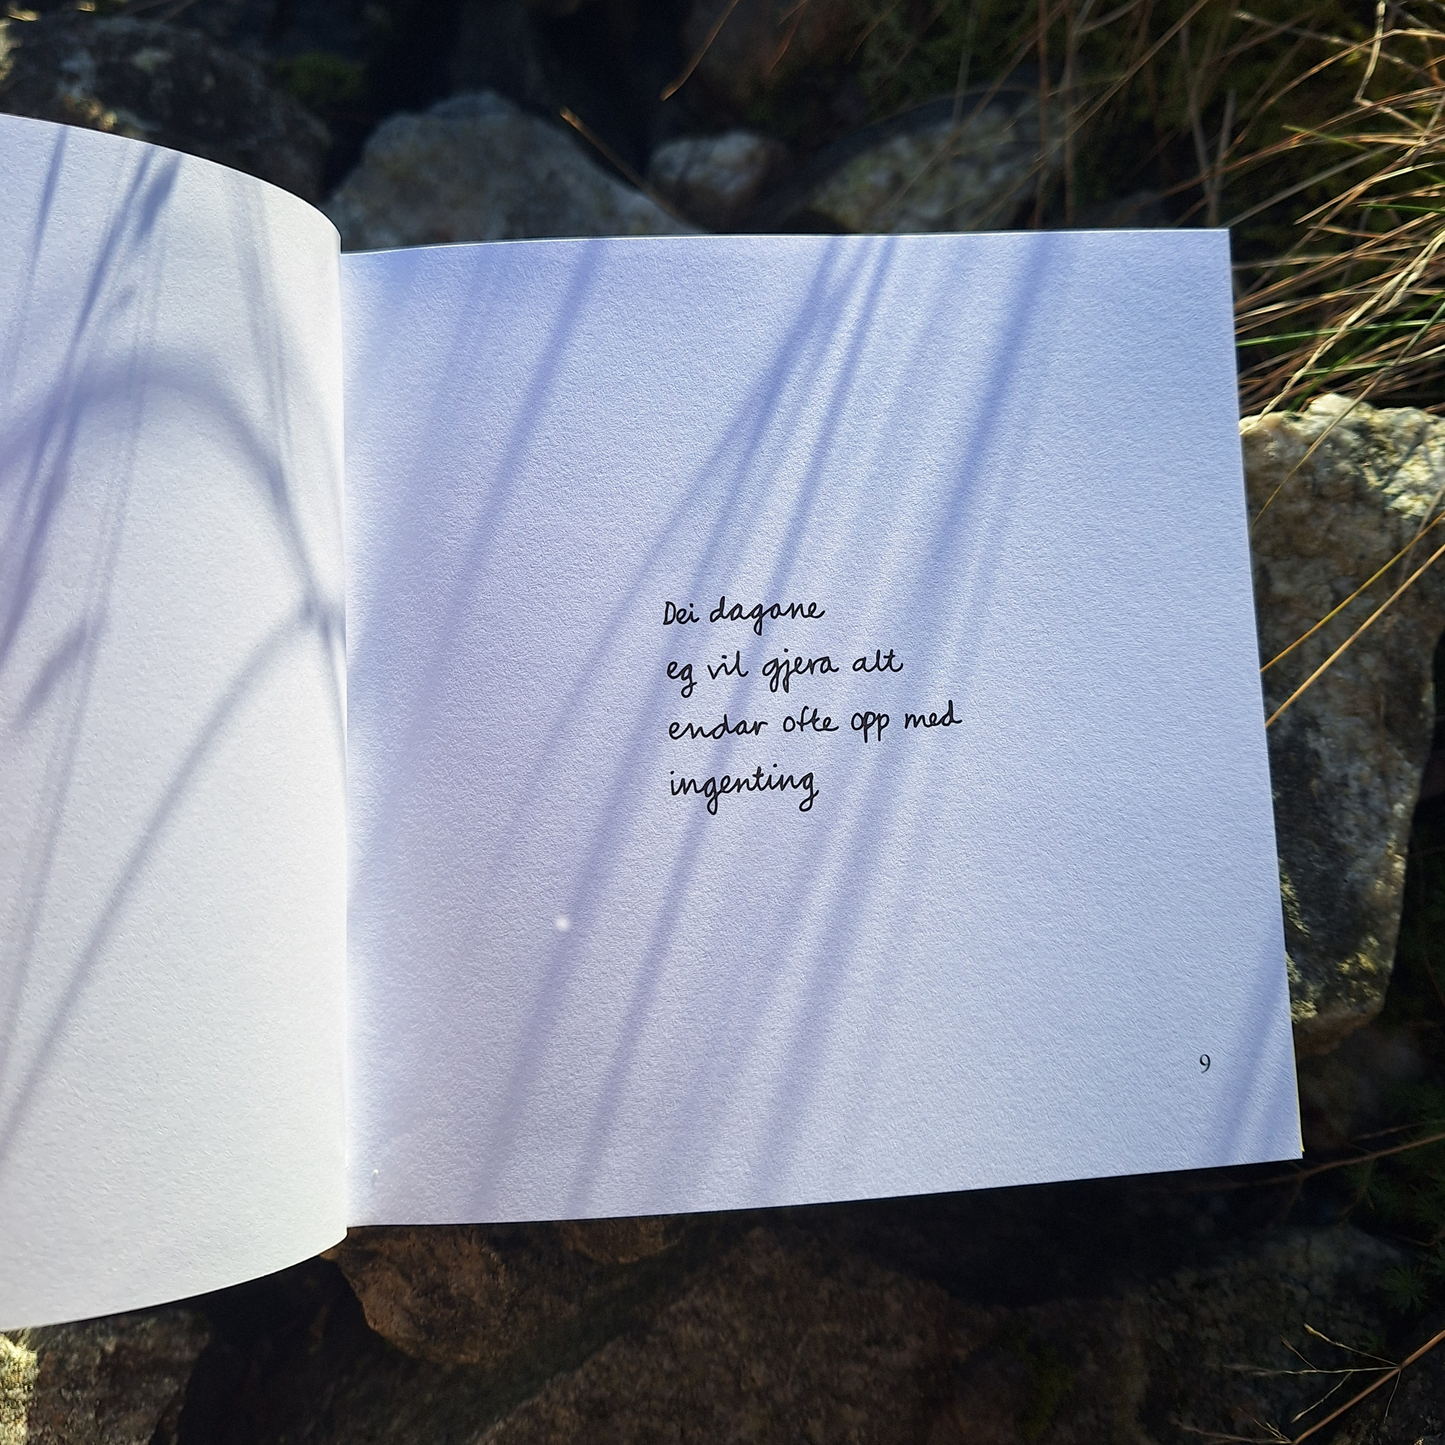 Dei dagane
eg vil gjera alt
endar ofte opp med
ingenting
9